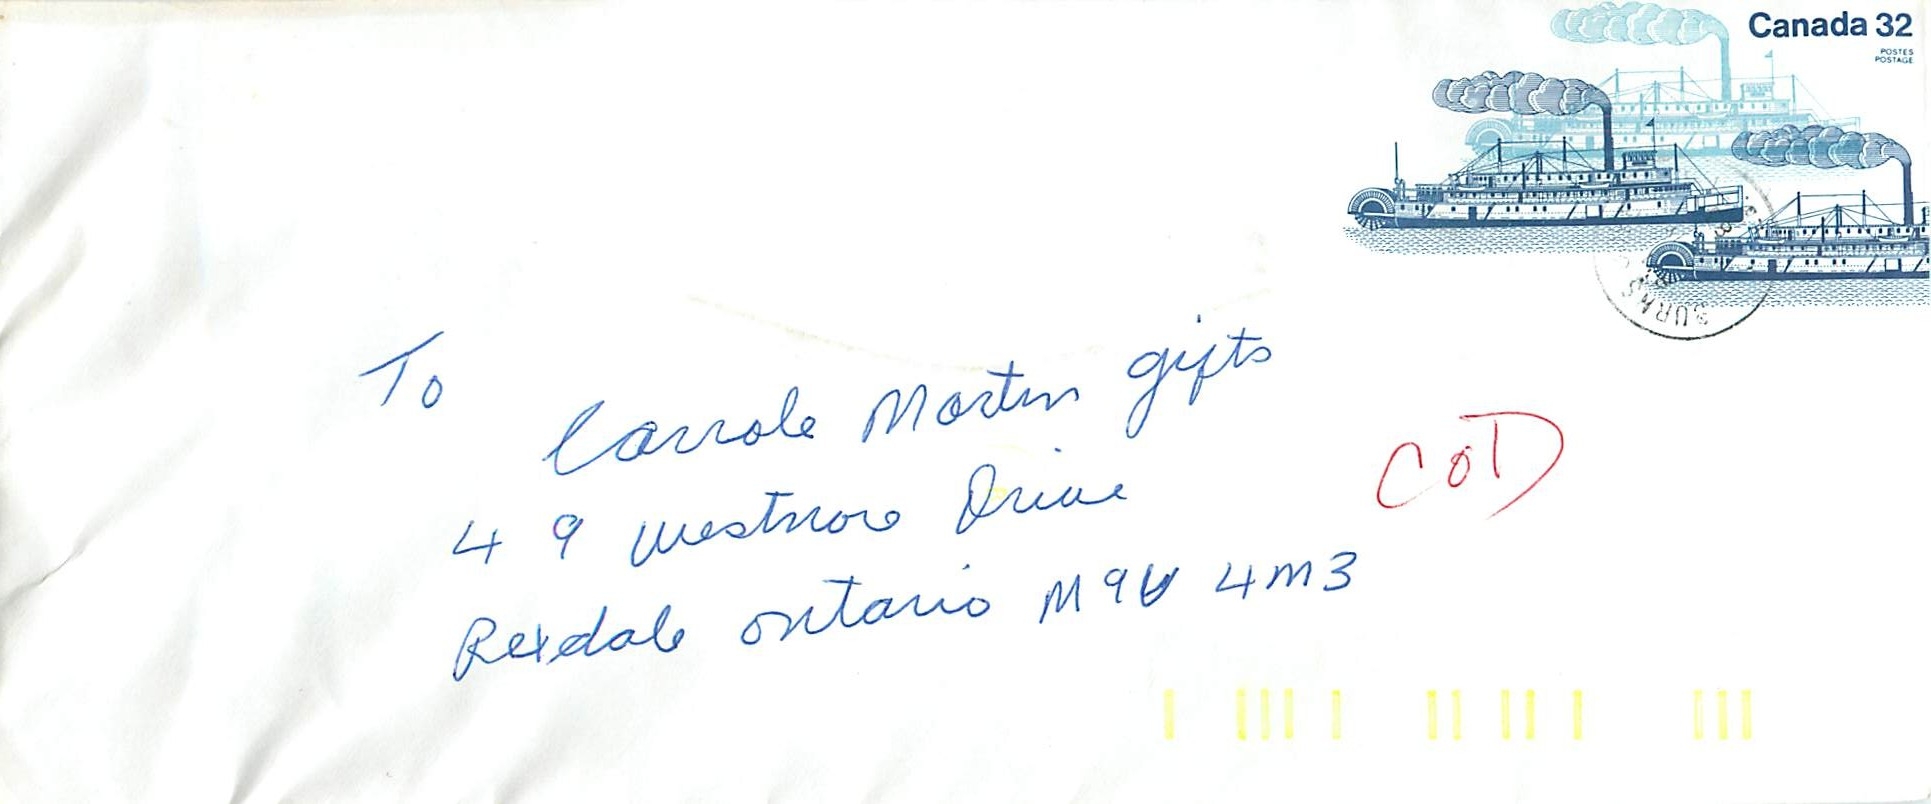 Canada 32
POSTES
POSTAGE
To
Carrole Martin gifts
COD
49 Westmore Drive
Rexdale Ontario M9V 4M3